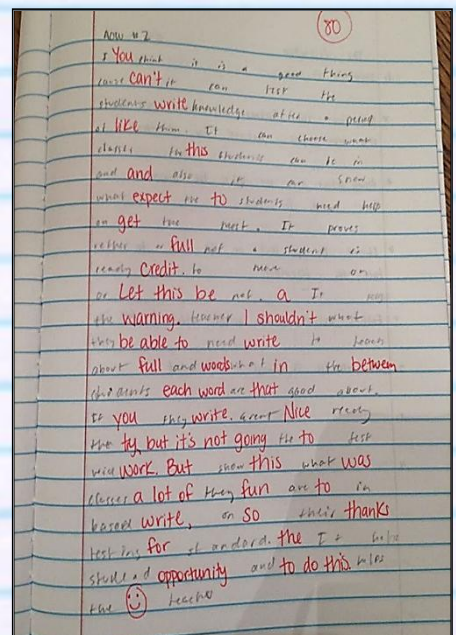 80
AOW #2
I You think it is a good thing
cause can't it can test the
students write knowledge after a period
of like time. It can choose what
classes the this students can be in
and and also it can show
what expect the to students need help
on get the most. It proves
rather or full not a student is
ready credit. to move on
or Let this be not. a It
the warning. teacher I shouldn't what
they be able to need write to teach
about full and words what in the between
students each word are that good about.
If you they write. Great Nice
the ty, but it's not going the to test
will work. But show this what was
classes a lot of they fun are to in
based write, on so their thanks
testing for standard. the It helps
opportunity and to do this. helps
the teacher